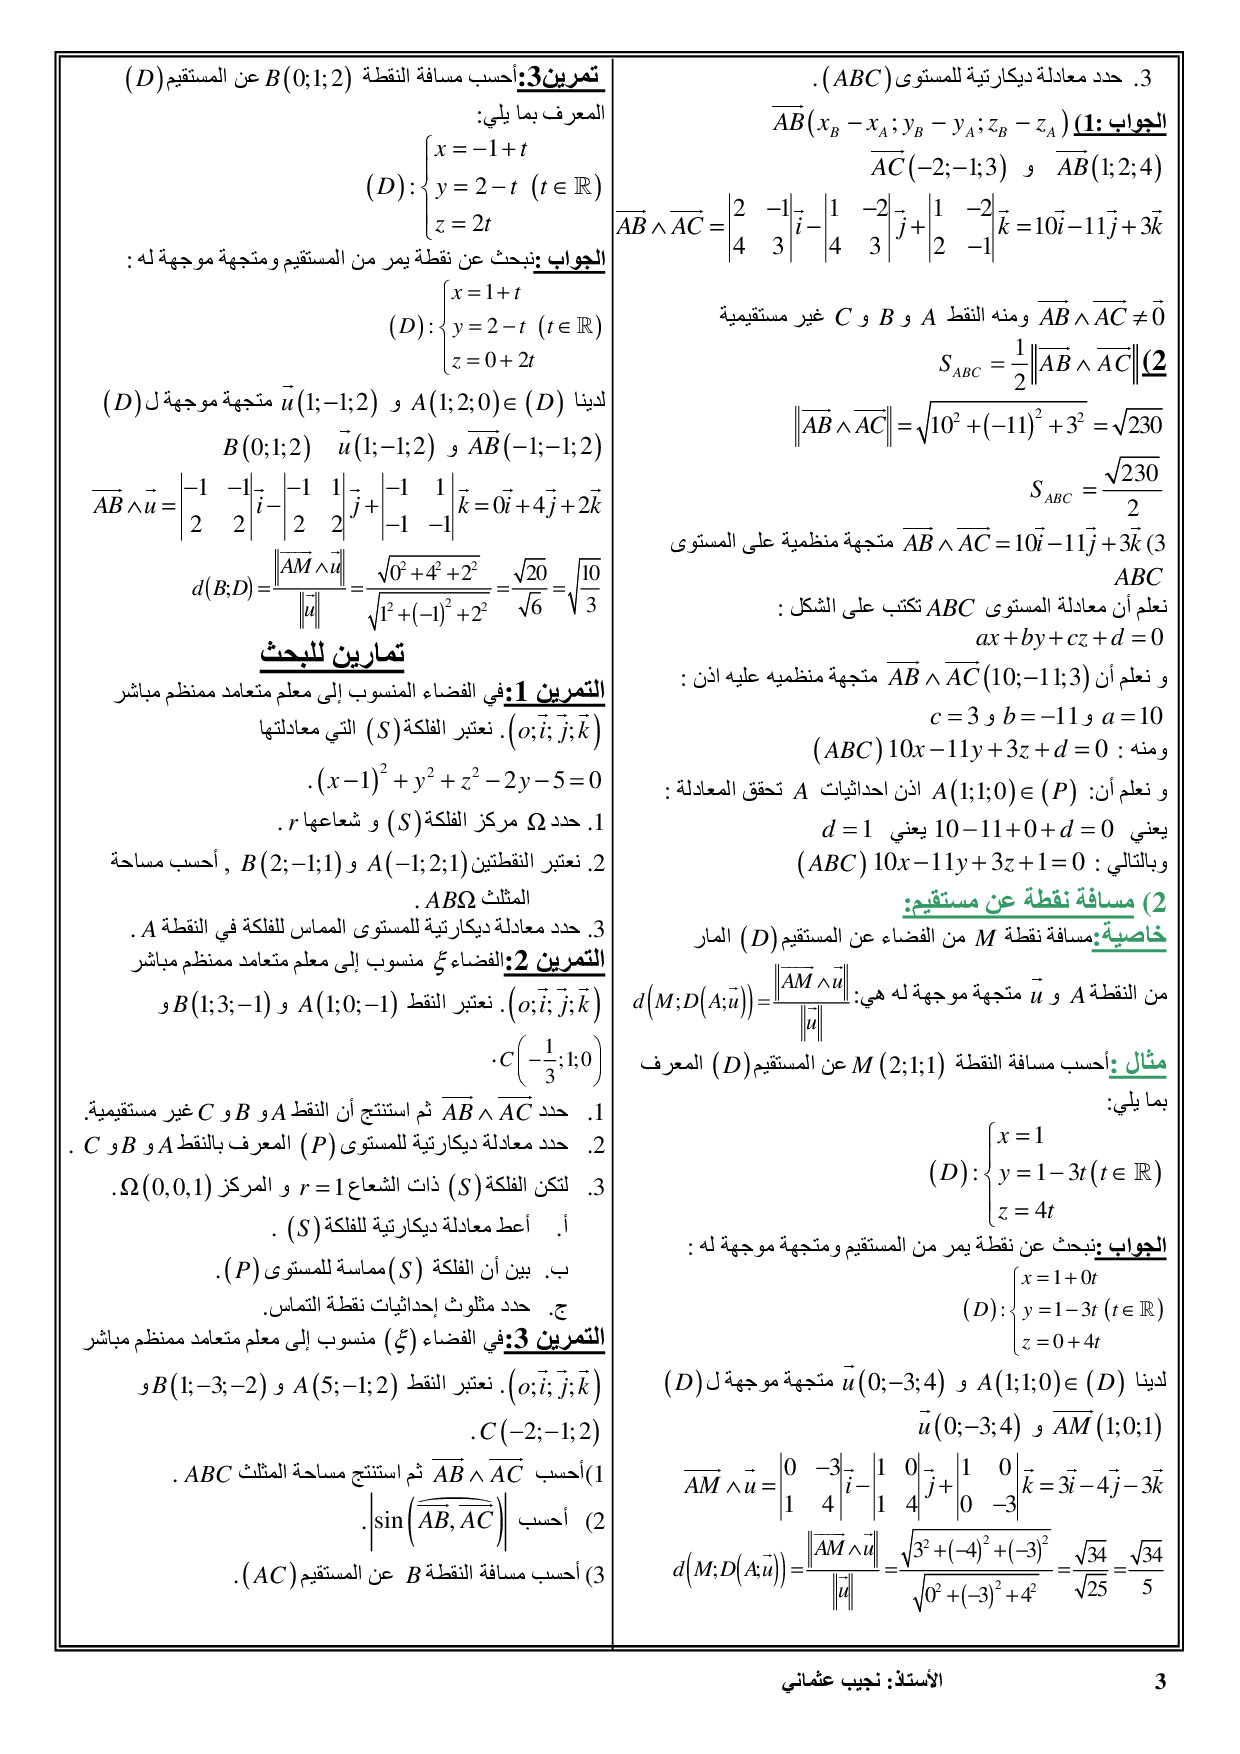 3. حدد معادلة ديكارتية للمستوى (ABC).
الجواب :1) AB(x_B − x_A ; y_B − y_A ; z_B − z_A)
AB(1;2;4) و AC(−2;−1;3)
AB ∧ AC = |2 −1; 4 3| i − |1 −2; 4 3| j + |1 −2; 2 −1| k = 10i − 11j + 3k
AB ∧ AC ≠ 0 ومنه النقط A و B و C غير مستقيمية
2) S_ABC = 1/2 ||AB ∧ AC||
||AB ∧ AC|| = √(10² + (−11)² + 3²) = √230
S_ABC = √230/2
3) AB ∧ AC = 10i − 11j + 3k متجهة منظمية على المستوى
ABC
نعلم أن معادلة المستوى ABC تكتب على الشكل :
ax + by + cz + d = 0
و نعلم أن AB ∧ AC(10;−11;3) متجهة منظميه عليه اذن :
a = 10 و b = −11 و c = 3
ومنه : (ABC) 10x − 11y + 3z + d = 0
و نعلم أن: A(1;1;0) ∈ (P) اذن احداثيات A تحقق المعادلة :
يعني 10 − 11 + 0 + d = 0 يعني d = 1
وبالتالي : (ABC) 10x − 11y + 3z + 1 = 0
2) مسافة نقطة عن مستقيم:
خاصية:مسافة نقطة M من الفضاء عن المستقيم (D) المار
من النقطة A و u متجهة موجهة له هي: d(M;D(A;u)) = ||AM ∧ u|| / ||u||
مثال :أحسب مسافة النقطة M(2;1;1) عن المستقيم (D) المعرف
بما يلي:
(D): { x = 1
y = 1 − 3t (t ∈ ℝ)
z = 4t
الجواب :نبحث عن نقطة يمر من المستقيم ومتجهة موجهة له :
(D): { x = 1 + 0t
y = 1 − 3t (t ∈ ℝ)
z = 0 + 4t
لدينا A(1;1;0) ∈ (D) و u(0;−3;4) متجهة موجهة ل (D)
AM(1;0;1) و u(0;−3;4)
AM ∧ u = |0 −3; 1 4| i − |1 0; 1 4| j + |1 0; 0 −3| k = 3i − 4j − 3k
d(M;D(A;u)) = ||AM ∧ u|| / ||u|| = √(3² + (−4)² + (−3)²) / √(0² + (−3)² + 4²) = √34/√25 = √34/5
تمرين3:أحسب مسافة النقطة B(0;1;2) عن المستقيم (D)
المعرف بما يلي:
(D): { x = −1 + t
y = 2 − t (t ∈ ℝ)
z = 2t
الجواب :نبحث عن نقطة يمر من المستقيم ومتجهة موجهة له :
(D): { x = 1 + t
y = 2 − t (t ∈ ℝ)
z = 0 + 2t
لدينا A(1;2;0) ∈ (D) و u(1;−1;2) متجهة موجهة ل (D)
AB(−1;−1;2) و u(1;−1;2) B(0;1;2)
AB ∧ u = |−1 −1; 2 2| i − |−1 1; 2 2| j + |−1 1; −1 −1| k = 0i + 4j + 2k
d(B;D) = ||AM ∧ u|| / ||u|| = √(0² + 4² + 2²) / √(1² + (−1)² + 2²) = √20/√6 = √(10/3)
تمارين للبحث
التمرين 1:في الفضاء المنسوب إلى معلم متعامد ممنظم مباشر
(o;i;j;k). نعتبر الفلكة (S) التي معادلتها
(x−1)² + y² + z² − 2y − 5 = 0.
1. حدد Ω مركز الفلكة (S) و شعاعها r .
2. نعتبر النقطتين A(−1;2;1) و B(2;−1;1) , أحسب مساحة
المثلث ABΩ .
3. حدد معادلة ديكارتية للمستوى المماس للفلكة في النقطة A .
التمرين 2:الفضاء ξ منسوب إلى معلم متعامد ممنظم مباشر
(o;i;j;k). نعتبر النقط A(1;0;−1) و B(1;3;−1) و
C(−1/3;1;0).
1. حدد AB ∧ AC ثم استنتج أن النقط A و B و C غير مستقيمية.
2. حدد معادلة ديكارتية للمستوى (P) المعرف بالنقط A و B و C .
3. لتكن الفلكة (S) ذات الشعاع r = 1 و المركز Ω(0,0,1).
أ. أعط معادلة ديكارتية للفلكة (S) .
ب. بين أن الفلكة (S) مماسة للمستوى (P).
ج. حدد مثلوث إحداثيات نقطة التماس.
التمرين 3:في الفضاء (ξ) منسوب إلى معلم متعامد ممنظم مباشر
(o;i;j;k). نعتبر النقط A(5;−1;2) و B(1;−3;−2) و
C(−2;−1;2).
1)أحسب AB ∧ AC ثم استنتج مساحة المثلث ABC .
2) أحسب |sin(AB, AC)|.
3) أحسب مسافة النقطة B عن المستقيم (AC).
الأستاذ: نجيب عثماني
3